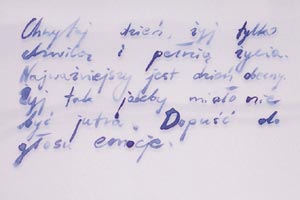 Chwytaj dzień, żyj tylko
chwilą i pełnią życia.
Najważniejszy jest dzień obecny.
Żyj tak jakby miało nie
być jutra. Dopuść do
głosu emocje.